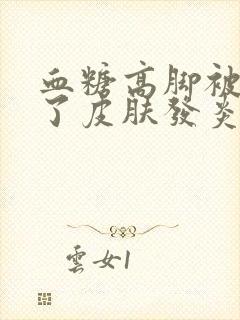 血糖高脚被
了皮肤發炎
雲女1